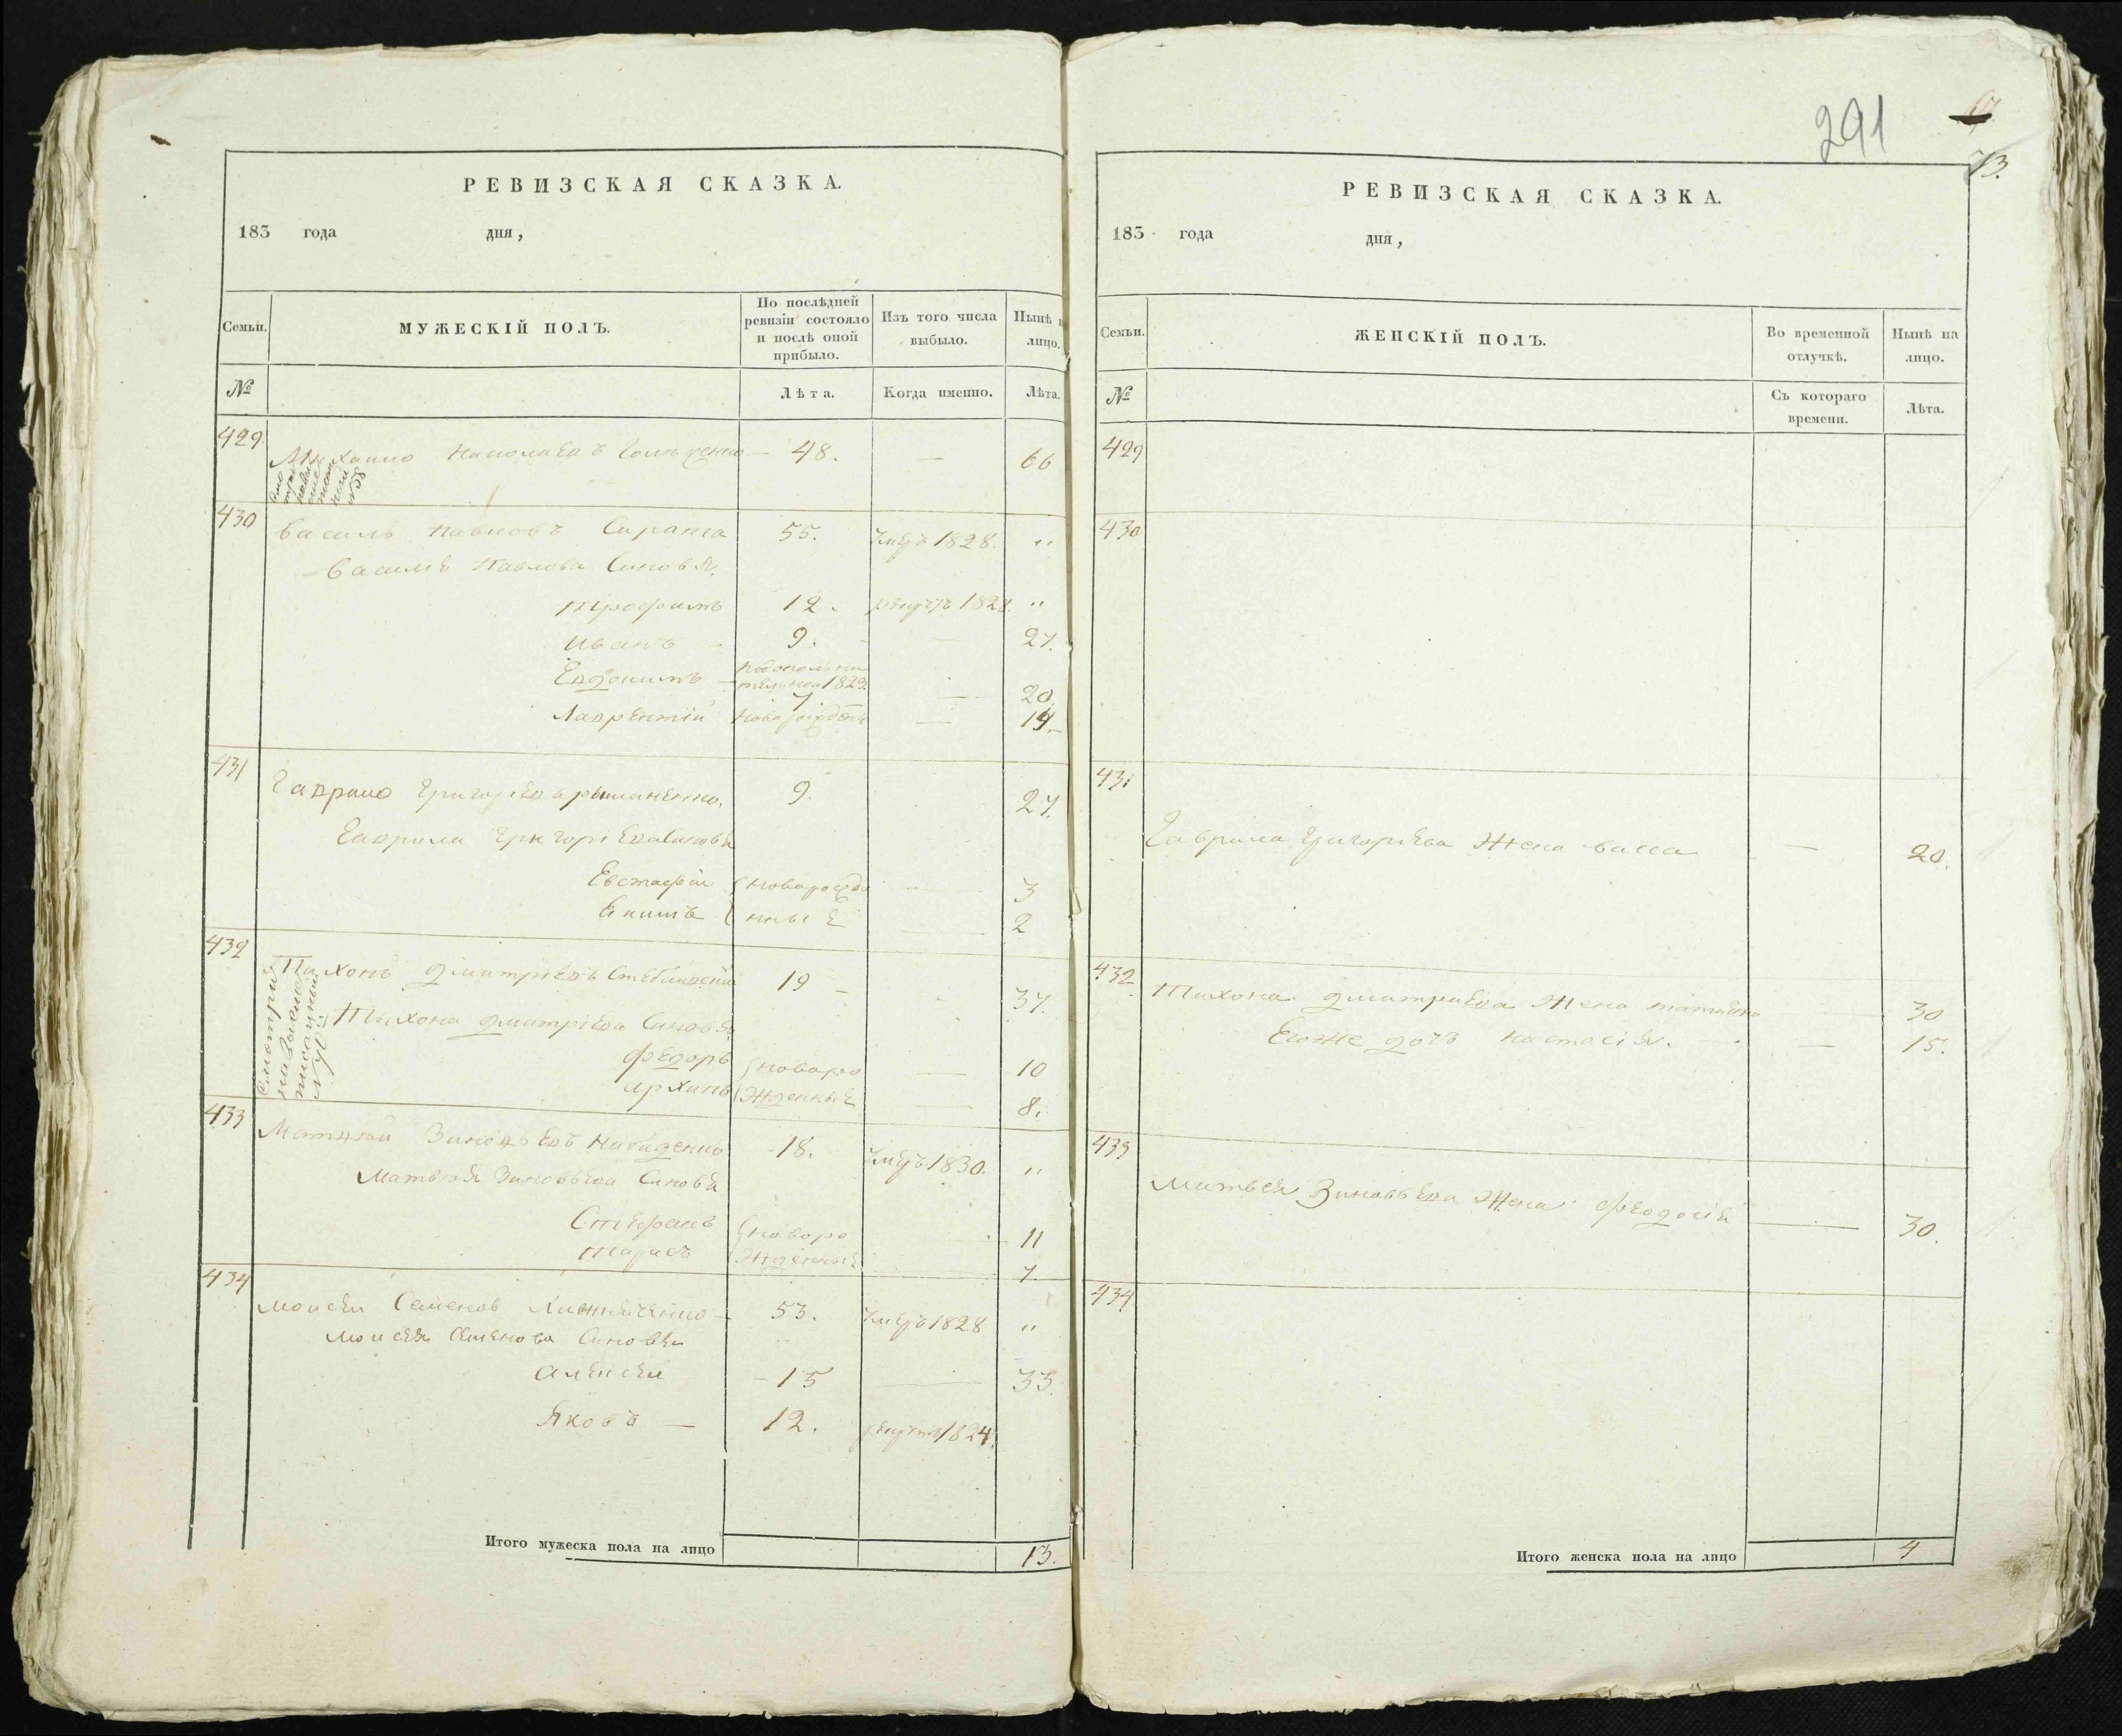 291
73.
РЕВИЗСКАЯ СКАЗКА.
183 года дня,
Семьи. МУЖЕСКІЙ ПОЛЪ. По послѣдней ревизіи состояло и послѣ оной прибыло. Изъ того числа выбыло. Нынѣ лицо.
№ Лѣта. Когда именно. Лѣта.
429 Николаевъ — 48. — 66
430 Василь Павловъ Сирота 55. умеръ 1828. "
Василя Павлова Синовья
Трофимъ 12. 1828. "
Иванъ — 9. — 27.
Евдокимъ — 1823. 7 — 20.
Лаврентій — 14
431 Гаврило Григорьевъ 9. 27.
Гаврила Григоріева Синовья
Евстафій новорожде — 3
Екимъ нные — 2
432 Тихонъ Дмитріевъ 19 — 37.
Тихона Дмитріева Синовья
Федоръ новоро — 10
Архипъ жденные — 8.
433 Матвѣй Зиновьевъ 18. умеръ 1830. "
Матвѣя Зиновьева Синовья
Стефанъ новоро — 11
Тарасъ жденные 7.
434 Моисей Семенов 53. умеръ 1828 "
Моисея Семенова Синовья
Алексей — 15 — 33.
Яковъ — 12. 1824.
Итого мужеска пола на лицо 13.
РЕВИЗСКАЯ СКАЗКА.
183 года дня,
Семьи. ЖЕНСКІЙ ПОЛЪ. Во временной отлучкѣ. Нынѣ на лицо.
№ Съ котораго времени. Лѣта.
429
430
431
Гаврила Григорьева Жена Васса — 20.
432
Тихона Дмитриева Жена Татьяна 30
Егоже дочь Настасія. — 15.
433
Матвея Зиновьева Жена Феодосія — 30.
434
Итого женска пола на лицо 4